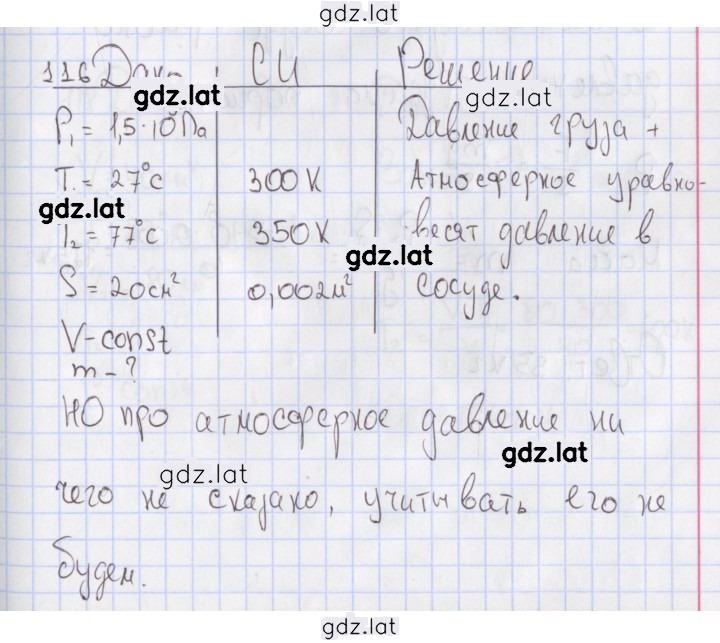 gdz.lat
116 Дано: СИ Решение
gdz.lat gdz.lat
P₁ = 1,5·10⁵ Па Давление груза +
T₁ = 27°с 300 К Атмосферное уравно-
gdz.lat
T₂ = 77°с 350 К весят давление в
gdz.lat
S = 20 см² 0,002 м² сосуде.
V-const
m - ?
НО про атмосферное давление ни
gdz.lat
gdz.lat
чего не сказано, учитывать его не
будем.
gdz.lat